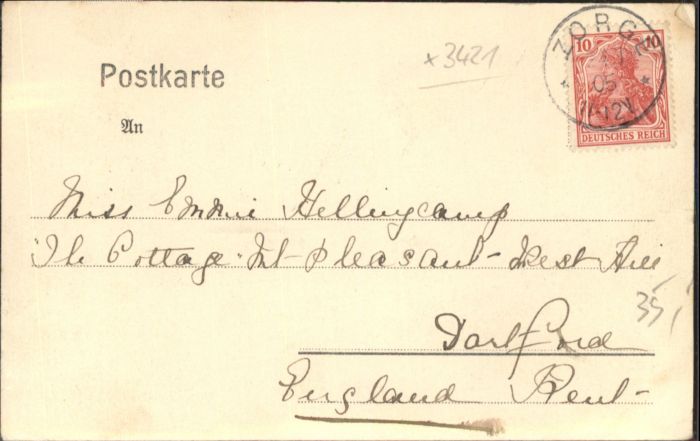 Postkarte
An
x3421
ZORGE
* 05 *
10 10
DEUTSCHES REICH
Miss Emmie Hellingcamp
The Cottage Mt Pleasant West Hill
35,
Dartford
England Kent